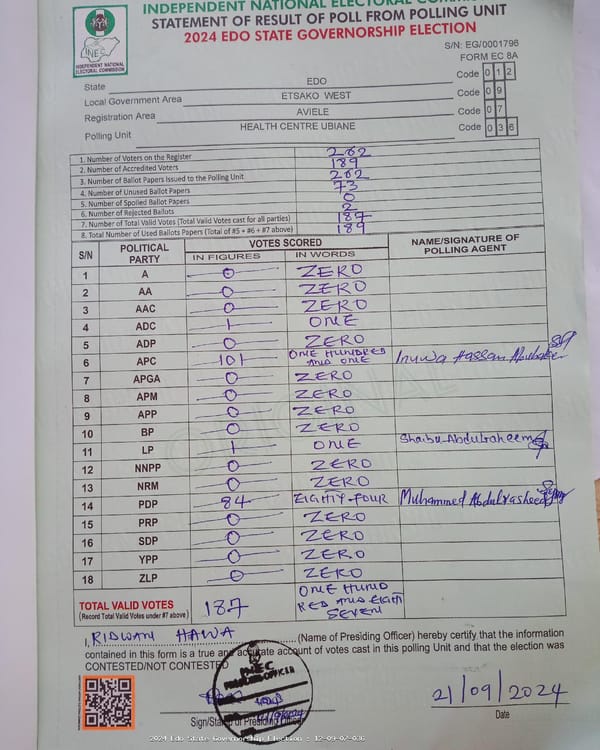 INDEPENDENT NATIONAL ELECTORAL COMMISSION
STATEMENT OF RESULT OF POLL FROM POLLING UNIT
2024 EDO STATE GOVERNORSHIP ELECTION
INEC
INDEPENDENT NATIONAL
ELECTORAL COMMISSION
S/N: EG/0001796
FORM EC 8A
State EDO Code 0 1 2
Local Government Area ETSAKO WEST Code 0 9
Registration Area AVIELE Code 0 7
Polling Unit HEALTH CENTRE UBIANE Code 0 3 6
1. Number of Voters on the Register 262
2. Number of Accredited Voters 189
3. Number of Ballot Papers Issued to the Polling Unit 262
4. Number of Unused Ballot Papers 73
5. Number of Spoiled Ballot Papers 0
6. Number of Rejected Ballots 2
7. Number of Total Valid Votes (Total Valid Votes cast for all parties) 187
8. Total Number of Used Ballots Papers (Total of #5 + #6 + #7 above) 189
S/N POLITICAL PARTY VOTES SCORED NAME/SIGNATURE OF POLLING AGENT
IN FIGURES IN WORDS
1 A 0 ZERO
2 AA 0 ZERO
3 AAC 0 ZERO
4 ADC 1 ONE
5 ADP 0 ZERO
6 APC 101 ONE HUNDRED AND ONE Inuwa Hassan Abubakar
7 APGA 0 ZERO
8 APM 0 ZERO
9 APP 0 ZERO
10 BP 0 ZERO
11 LP 1 ONE Shaibu Abdulraheem
12 NNPP 0 ZERO
13 NRM 0 ZERO
14 PDP 84 EIGHTY-FOUR Muhammed Abdulrasheed
15 PRP 0 ZERO
16 SDP 0 ZERO
17 YPP 0 ZERO
18 ZLP 0 ZERO
TOTAL VALID VOTES
(Record Total Valid Votes under #7 above) 187 ONE HUND
RED AND EIGHTY
SEVEN
I, RIDWAN HAWA (Name of Presiding Officer) hereby certify that the information
contained in this form is a true and accurate account of votes cast in this polling Unit and that the election was
CONTESTED/NOT CONTESTED
INEC
PRESIDING OFFICER
21/09/2024
Sign/Stamp of Presiding Officer
21/09/2024
Date
2024 Edo State Governorship Election : 12-09-07-036